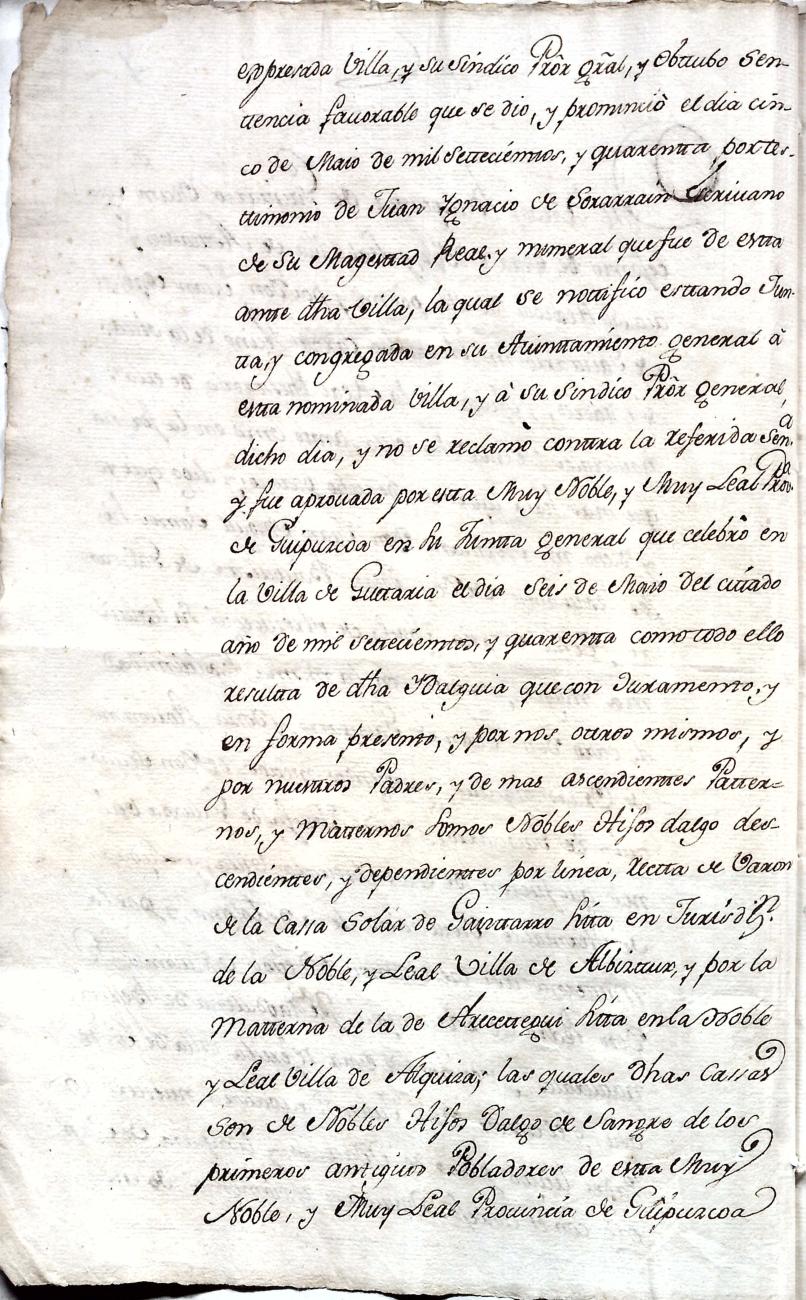 expresada Villa, y su sindico Prõr gral, y obtubo sen-
tencia favorable que se dio, y pronunciò el dia cin-
co de Maio de mil settecientos, y quarentta, por tes-
timonio de Juan Ygnacio de Sorarrain Escrivano
de su Magestad Real, y numeral que fue de estta
antte dha Villa, la qual se nottificó esttando Jun-
tta, y congregada en su Aiunttamiento general à
estta nominada Villa, y à su sindico Prõr general,
dicho dia, y no se reclamò conttra la referida Sen.a
y fue aprouada por estta Muy Noble, y Muy Leal Prov.a
de Guipuzcòa en su Juntta general que celebrò en
la Villa de Guttaria el dia seis de Maio del cittado
año de mil settecientos, y quarentta como todo ello
resultta de dha Ydalguia que con Juramento, y
en forma presento, y por nos otros mismos, y
por nuestros Padres, y de mas ascendienttes Patter=
nos, y Matternos somos Nobles Hijos dalgo des-
cendienttes, y dependienttes por linea, Rectta de Varon
de la Cassa Solar de Gainttarro sitta en Jurisd.n
de la Noble, y Leal Villa de Albiztur, y por la
Matterna de la de Arecettegui sitta en la Noble
y Leal Villa de Alquiza; las quales dhas Cassas
son de Nobles Hijos Dalgo de Sangre de los
primeros antiguos Pobladores de estta Muy
Noble, y Muy Leal Prouincia de Guipuzcoa